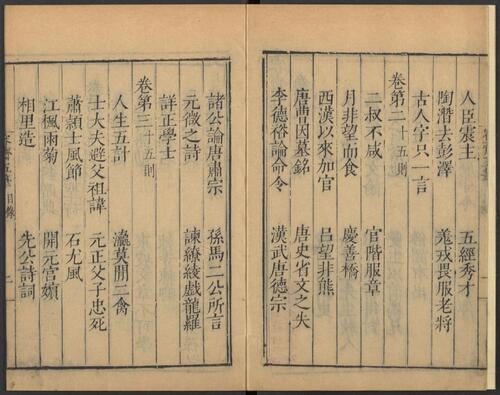 人臣震主　五經秀才
陶潛去彭澤　羌戎畏服老將
古人字只一言
卷第二 十五則
二叔不咸　官階服章
月非望而食　慶善橋
西漢以來加官　呂望非熊
唐曹因墓銘　唐史省文之失
李德裕論命令　漢武唐德宗
諸公論唐肅宗　孫馬二公所言
元微之詩　諫繚綾戲龍羅
詳正學士
卷第三 十五則
人生五計　瀛莫間二禽
士大夫避父祖諱　元正父子忠死
蕭頴士風節　石尤風
江楓雨菊　開元宮嬪
相里造　先公詩詞
容齋五筆 目錄 二